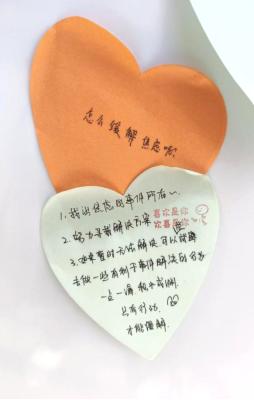 怎么缓解焦虑呢?
1.找出焦虑的事件所在~.
2.努力寻找解决方案
喜欢是你
欢喜是你
3.如果暂时无法解决可以
去做一些有利于事件解决的
一点一滴
只有行动
才能缓解.